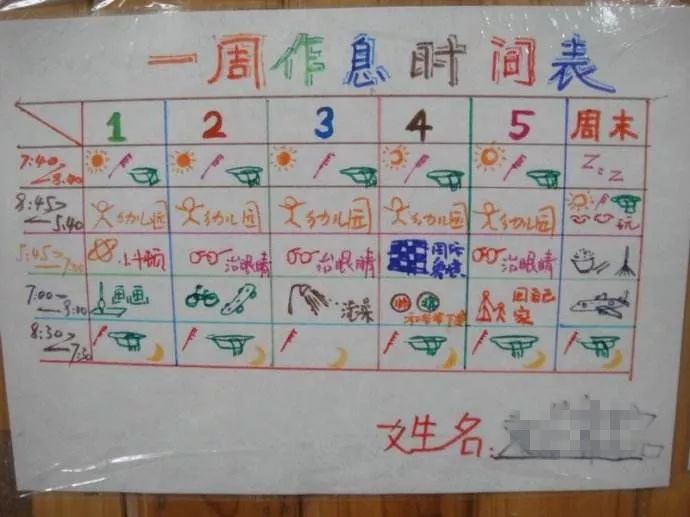 一周作息时间表
1 2 3 4 5 周末
7:40 8:40 Z z Z
8:45 5:40 幼儿园 幼儿园 幼儿园 幼儿园 幼儿园 玩
5:45 7:00 治眼睛 治眼睛 围棋 治眼睛
7:00 画画 洗澡 帅 下棋 回自己家
8:30 7:30
姓名: